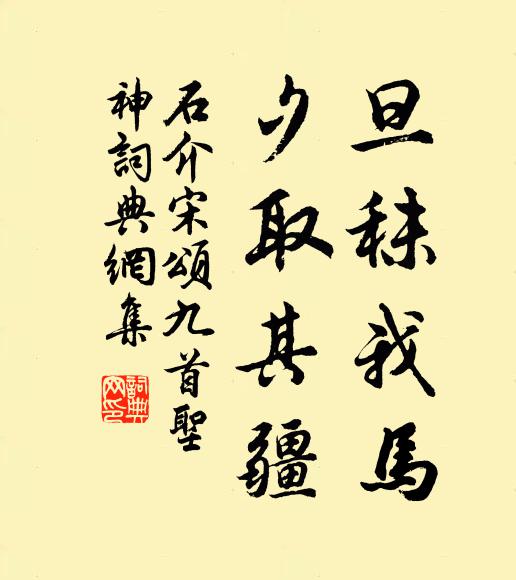 旦秣我馬
夕取其疆
石介宋頌九首聖
神詞典網集
詞典
网印